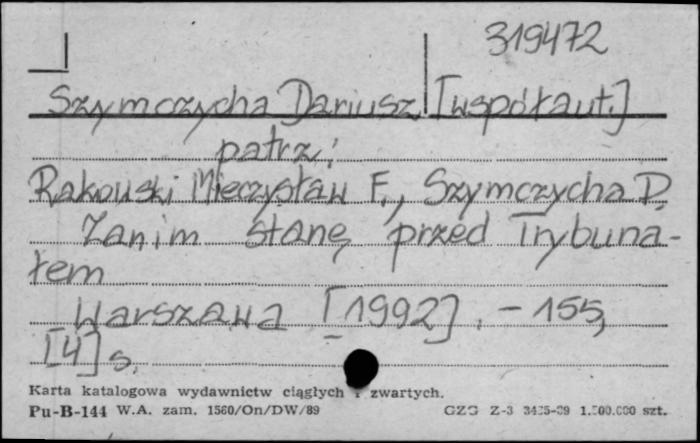 319472
Szymczycha Dariusz [współaut.]
patrz:
Rakowski Mieczysław F., Szymczycha D.
Zanim stanę przed Trybuna-
łem
Warszawa [1992]. - 155,
[4] s.
Karta katalogowa wydawnictw ciągłych i zwartych.
Pu-B-144 W.A. zam. 1560/On/DW/89 GZG Z-3 szt.